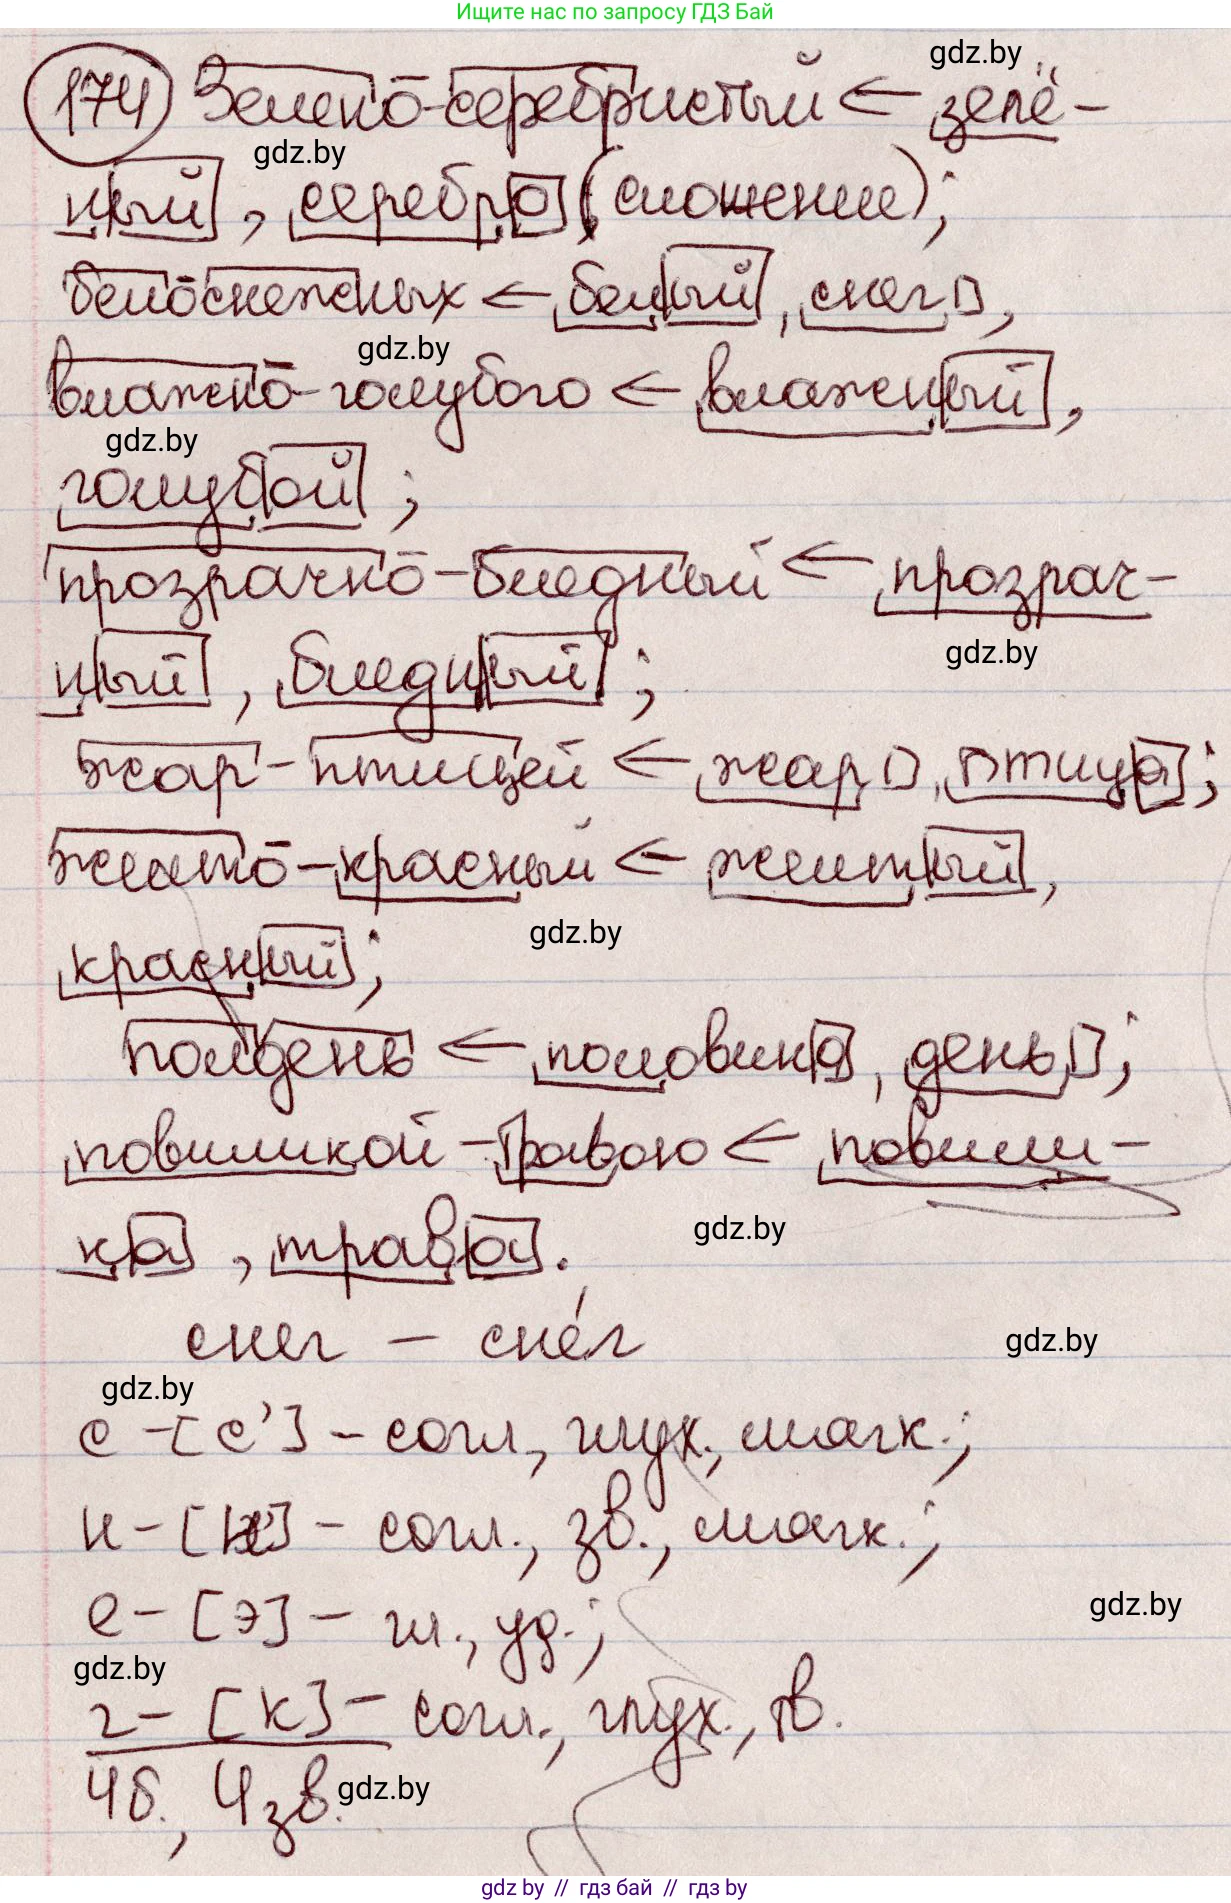 Ищите нас по запросу ГДЗ Бай
gdz.by
174 Зелено-серебристый ← зелё-
gdz.by
ный, серебро (сложение);
белоснежных ← белый, снег,
gdz.by
влажно-голубого ← влажный,
gdz.by
голубой;
прозрачно-бледный ← прозрач-
gdz.by
ный, бледный;
жар-птицей ← жар, птица;
желто-красный ← желтый,
gdz.by
красный;
полдень ← половина, день;
повиликой-травою ← повили-
gdz.by
ка, трава.
снег – сне́г
gdz.by
gdz.by
с – [с'] – согл., глух., мягк.;
н – [н'] – согл., зв., мягк.;
е – [э] – гл., уд.;
gdz.by
gdz.by
г – [к] – согл., глух., тв.
4б., 4зв.
gdz.by
gdz.by // гдз бай // gdz.by